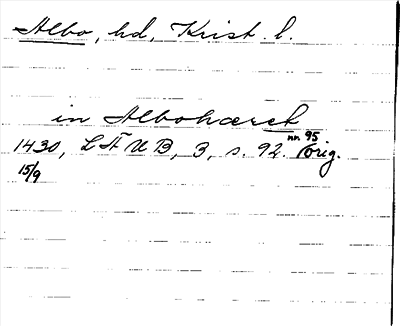 Albo, hd, Krist. l.
in Albohæret
nr. 95
1430, LÄUB, 3, s. 92. Orig.
15/9